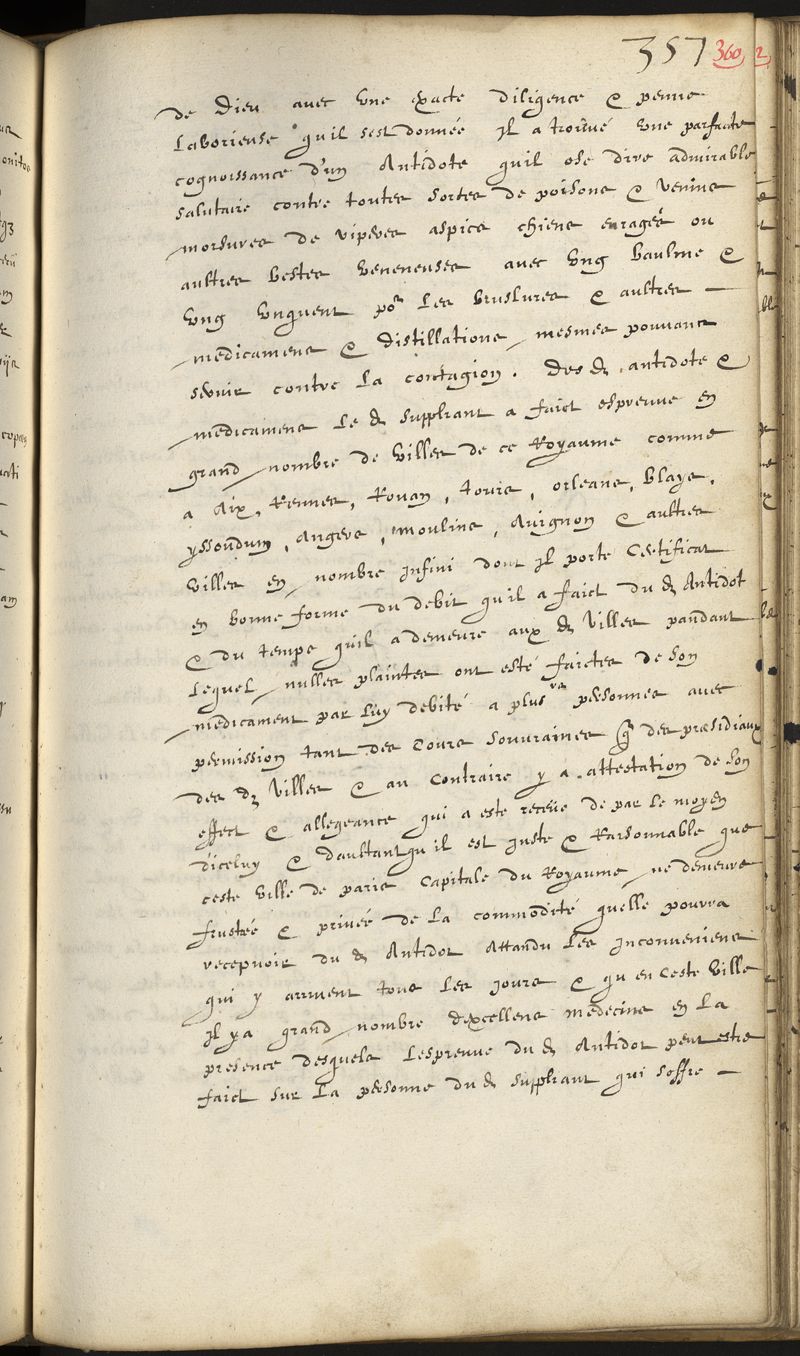 357 360 2
de Dieu avec une exacte diligence & penne
laborieuse qu'il sest donnée Il a trouvé une parfaicte
cognoissance d'un Antidote quil ose dire admirable
salutaire contre toutes sortes de poisons & venins
morsures de viperes aspics chiens enragés ou
aultres bestes veneneuses avec ung baulme &
ung unguent po.r les bruslures & aultres
medicamens & distillations mesmes pouvant
servir contre la contagion. Des d. antidote &
medicamens le d. suppliant a faict espreuve en
grand nombre de villes de ce Royaume comme
a Aix, Rennes, Rouan, tours, orleans, Blaye,
yssoudum, Angers, moulins, Avignon & aultres
villes en nombre infini dont Il porte Certificat
en bonne forme du debit qu'il a faict du d. Antidot
& du temps quil a demeure aux d. villes pandant
lequel nulles plaintes ont esté faictes de son
medicament par luy debité a plus.rs personnes avec
permission tant des Cours souvraines q. des præsidiaux
des d. villes & au contraire y a attestation de son
effect & allegeance qui a este receue de par le moyen
d'iceluy & daultant qu il est juste & Raisonnable que
ceste ville de paris Capitale du Royaume ne demeure
frustrée & privée de la commodité quelle pouvra
recepvoir du d. Antidot Attandu les Inconveniens
qui y arrivent tous les jours & qu en Ceste ville
Il y a grand nombre dexcellens medecins en la
presence desquels lespreuve du d. Antidot peut estre
faict sur la personne du d. suppliant qui soffre